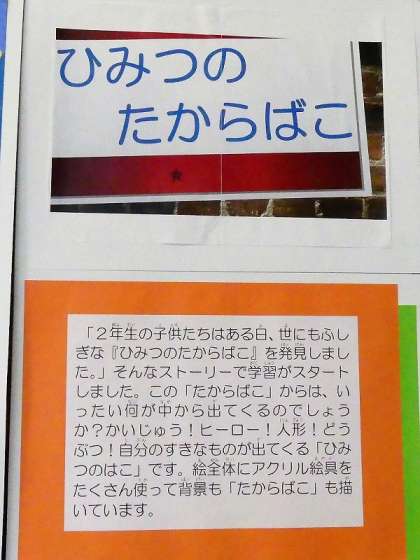 ひみつの
たからばこ
「２年生の子供たちはある日、世にもふし
ぎな『ひみつのたからばこ』を発見しまし
た。」そんなストーリーで学習がスタート
しました。この「たからばこ」からは、い
ったい何が中から出てくるのでしょう
か？かいじゅう！ヒーロー！人形！どう
ぶつ！自分のすきなものが出てくる「ひみ
つのはこ」です。絵全体にアクリル絵具を
たくさん使って背景も「たからばこ」も描
いています。